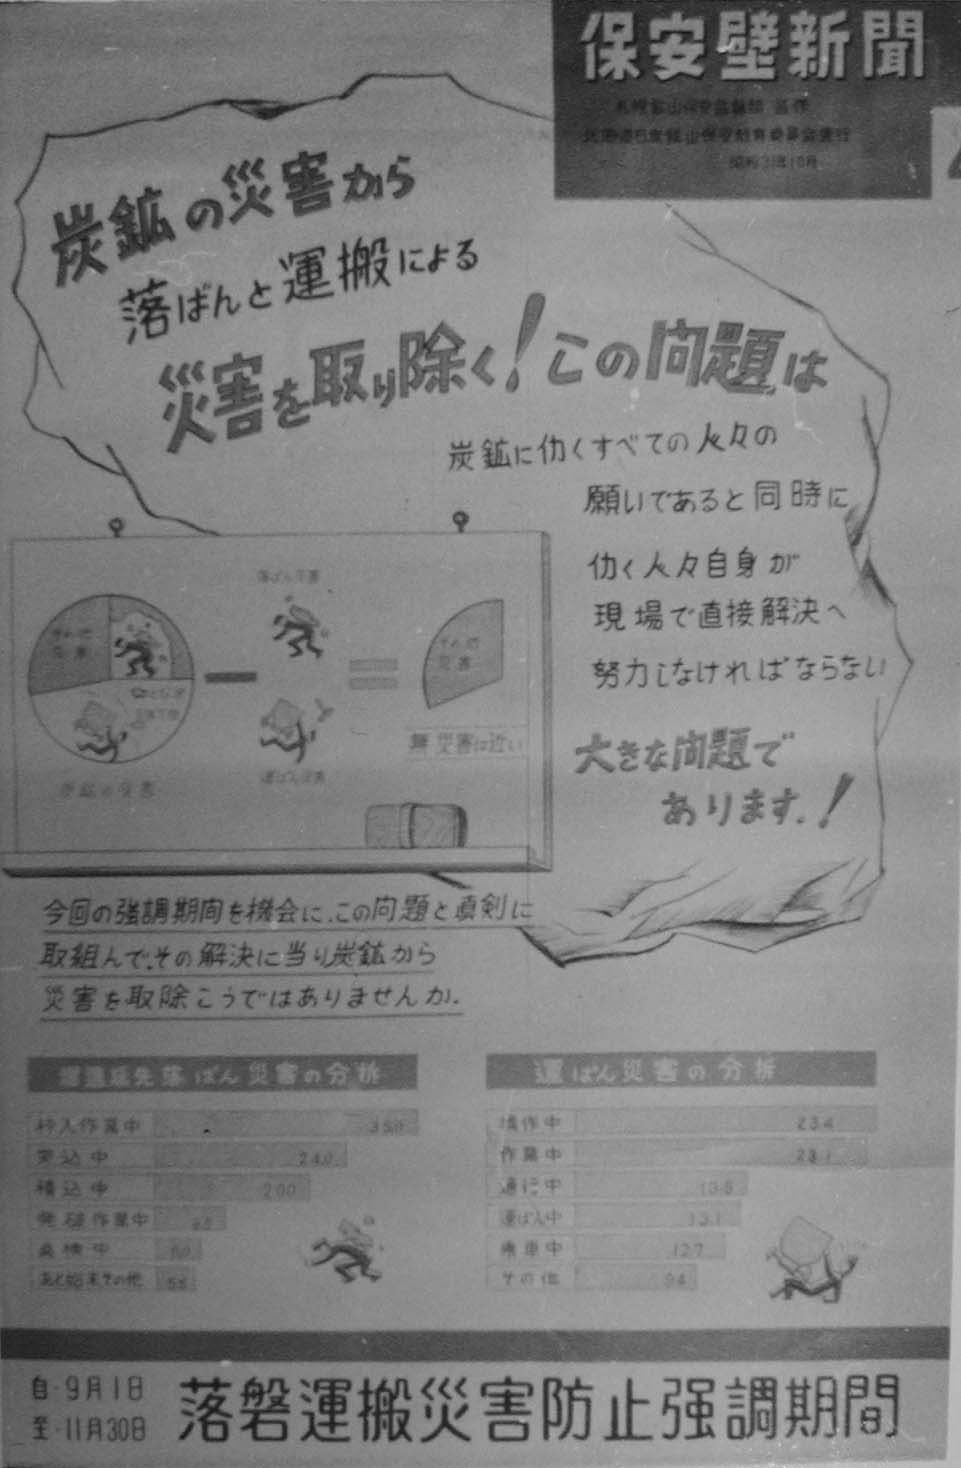 保安壁新聞
札幌鉱山保安監督部 監修
北海道石炭鉱山保安教育委員会発行
昭和31年10月
炭鉱の災害から
落ばんと運搬による
災害を取り除く!この問題は
炭鉱に仂くすべての人々の
願いであると同時に
仂く人々自身が
現場で直接解決へ
努力しなければならない
大きな問題で
あります.!
落ばん災害
その他
災害
その他
災害
無災害は近い
炭鉱の災害
運ばん災害
今回の強調期間を機会に、この問題と真剣に
取組んで、その解決に当り炭鉱から
災害を取除こうではありませんか.
落ばん災害の分析
枠入作業中 350
240
積込中 200
発破作業中
点検中
あと始末その他 55
運ばん災害の分析
操作中 234
作業中 231
通行中
運ばん中 131
乗車中 127
その他 94
自・9月1日
至・11月30日
落磐運搬災害防止強調期間